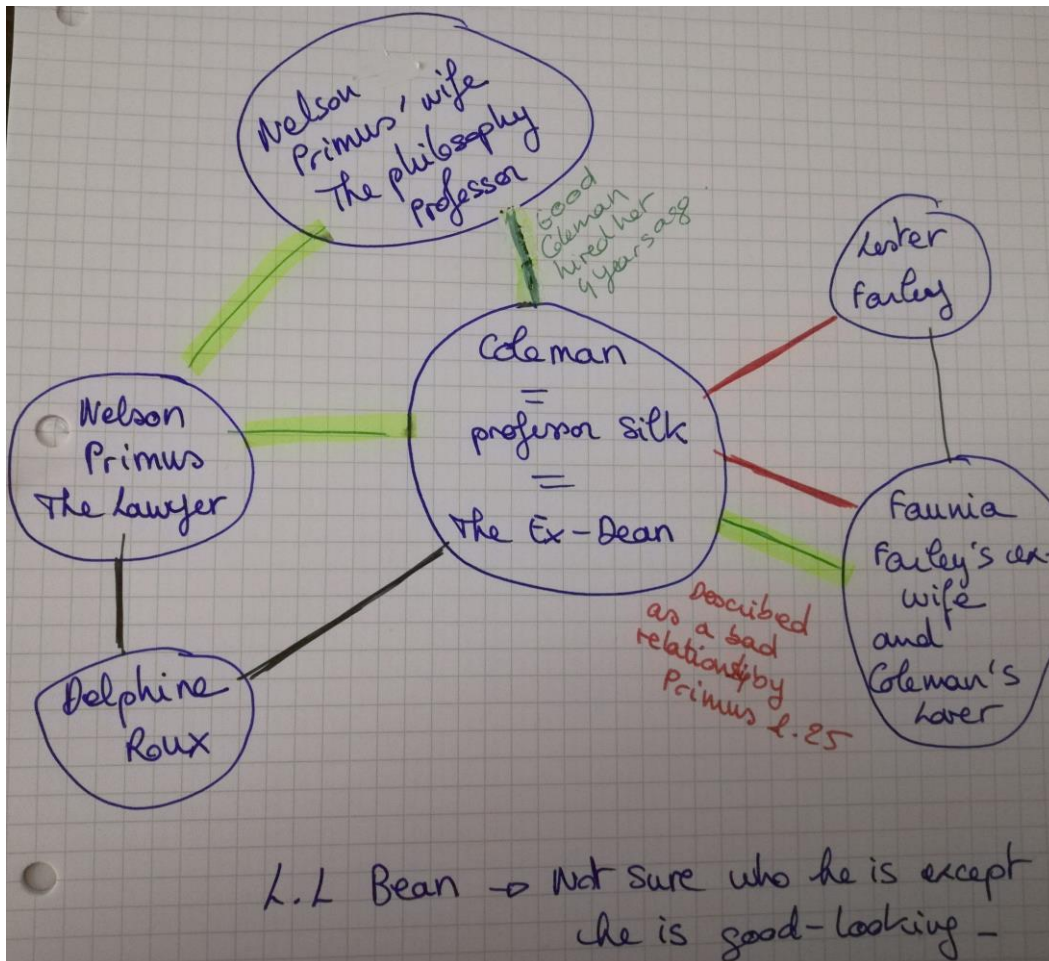 Nelson
Primus' wife
The philosophy
professor
Good
Coleman
hired her
4 years ago
Lester
Farley
Coleman
=
professor Silk
=
The Ex-Dean
Nelson
Primus
The Lawyer
Faunia
Farley's ex-
wife
and
Coleman's
Lover
Described
as a bad
by
Primus l.25
Delphine
Roux
L.L Bean → Not sure who he is except
he is good-looking -